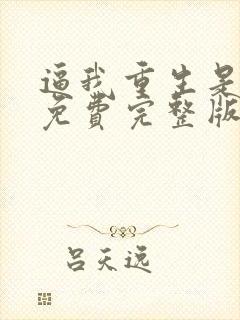 逼我重生是
免费完整版
吕天逸